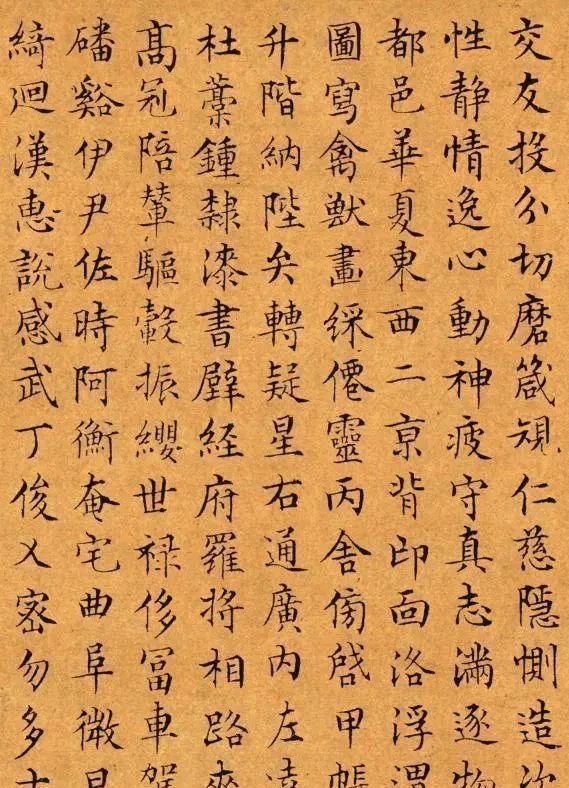 交友投分切磨箴規仁慈隱惻造次
性静情逸心動神疲守真志滿逐物
都邑華夏東西二京背邙面洛浮渭
圖寫禽獸畫綵僊靈丙舍傍啓甲帳
升階納陛弁轉疑星右通廣内左達
杜藁鍾隸漆書壁経府羅將相路夾
髙冠陪輦驅轂振纓世禄侈冨車駕
磻谿伊尹佐時阿衡奄宅曲阜微旦
綺迴漢惠說感武丁俊乂密勿多士